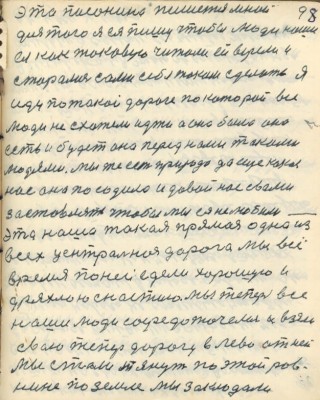 98
Эта писанина пишется мной
для того я ея пишу чтобы люди наши
ея как таковую читали ей верили и
старалися сами себя таким сделать я
иду по такой дороге по которой все
люди не схотели идти а она была она
есть и будет она перед нами такими
людями. мы же есть природа да еще кака
нас она породила и давай нас своими
заставлять чтобы мы ея не любили
Эта наша такая прямая одна из
всех центральная дорога мы всё
время по ней едем хорошую и
дряхлою снастию. мы тепер все
наши люди сосредоточели и взяли
свою тепер дорогу в лево от ней
мы стали тянут по этой ров-
нине по земле мы заклюдали